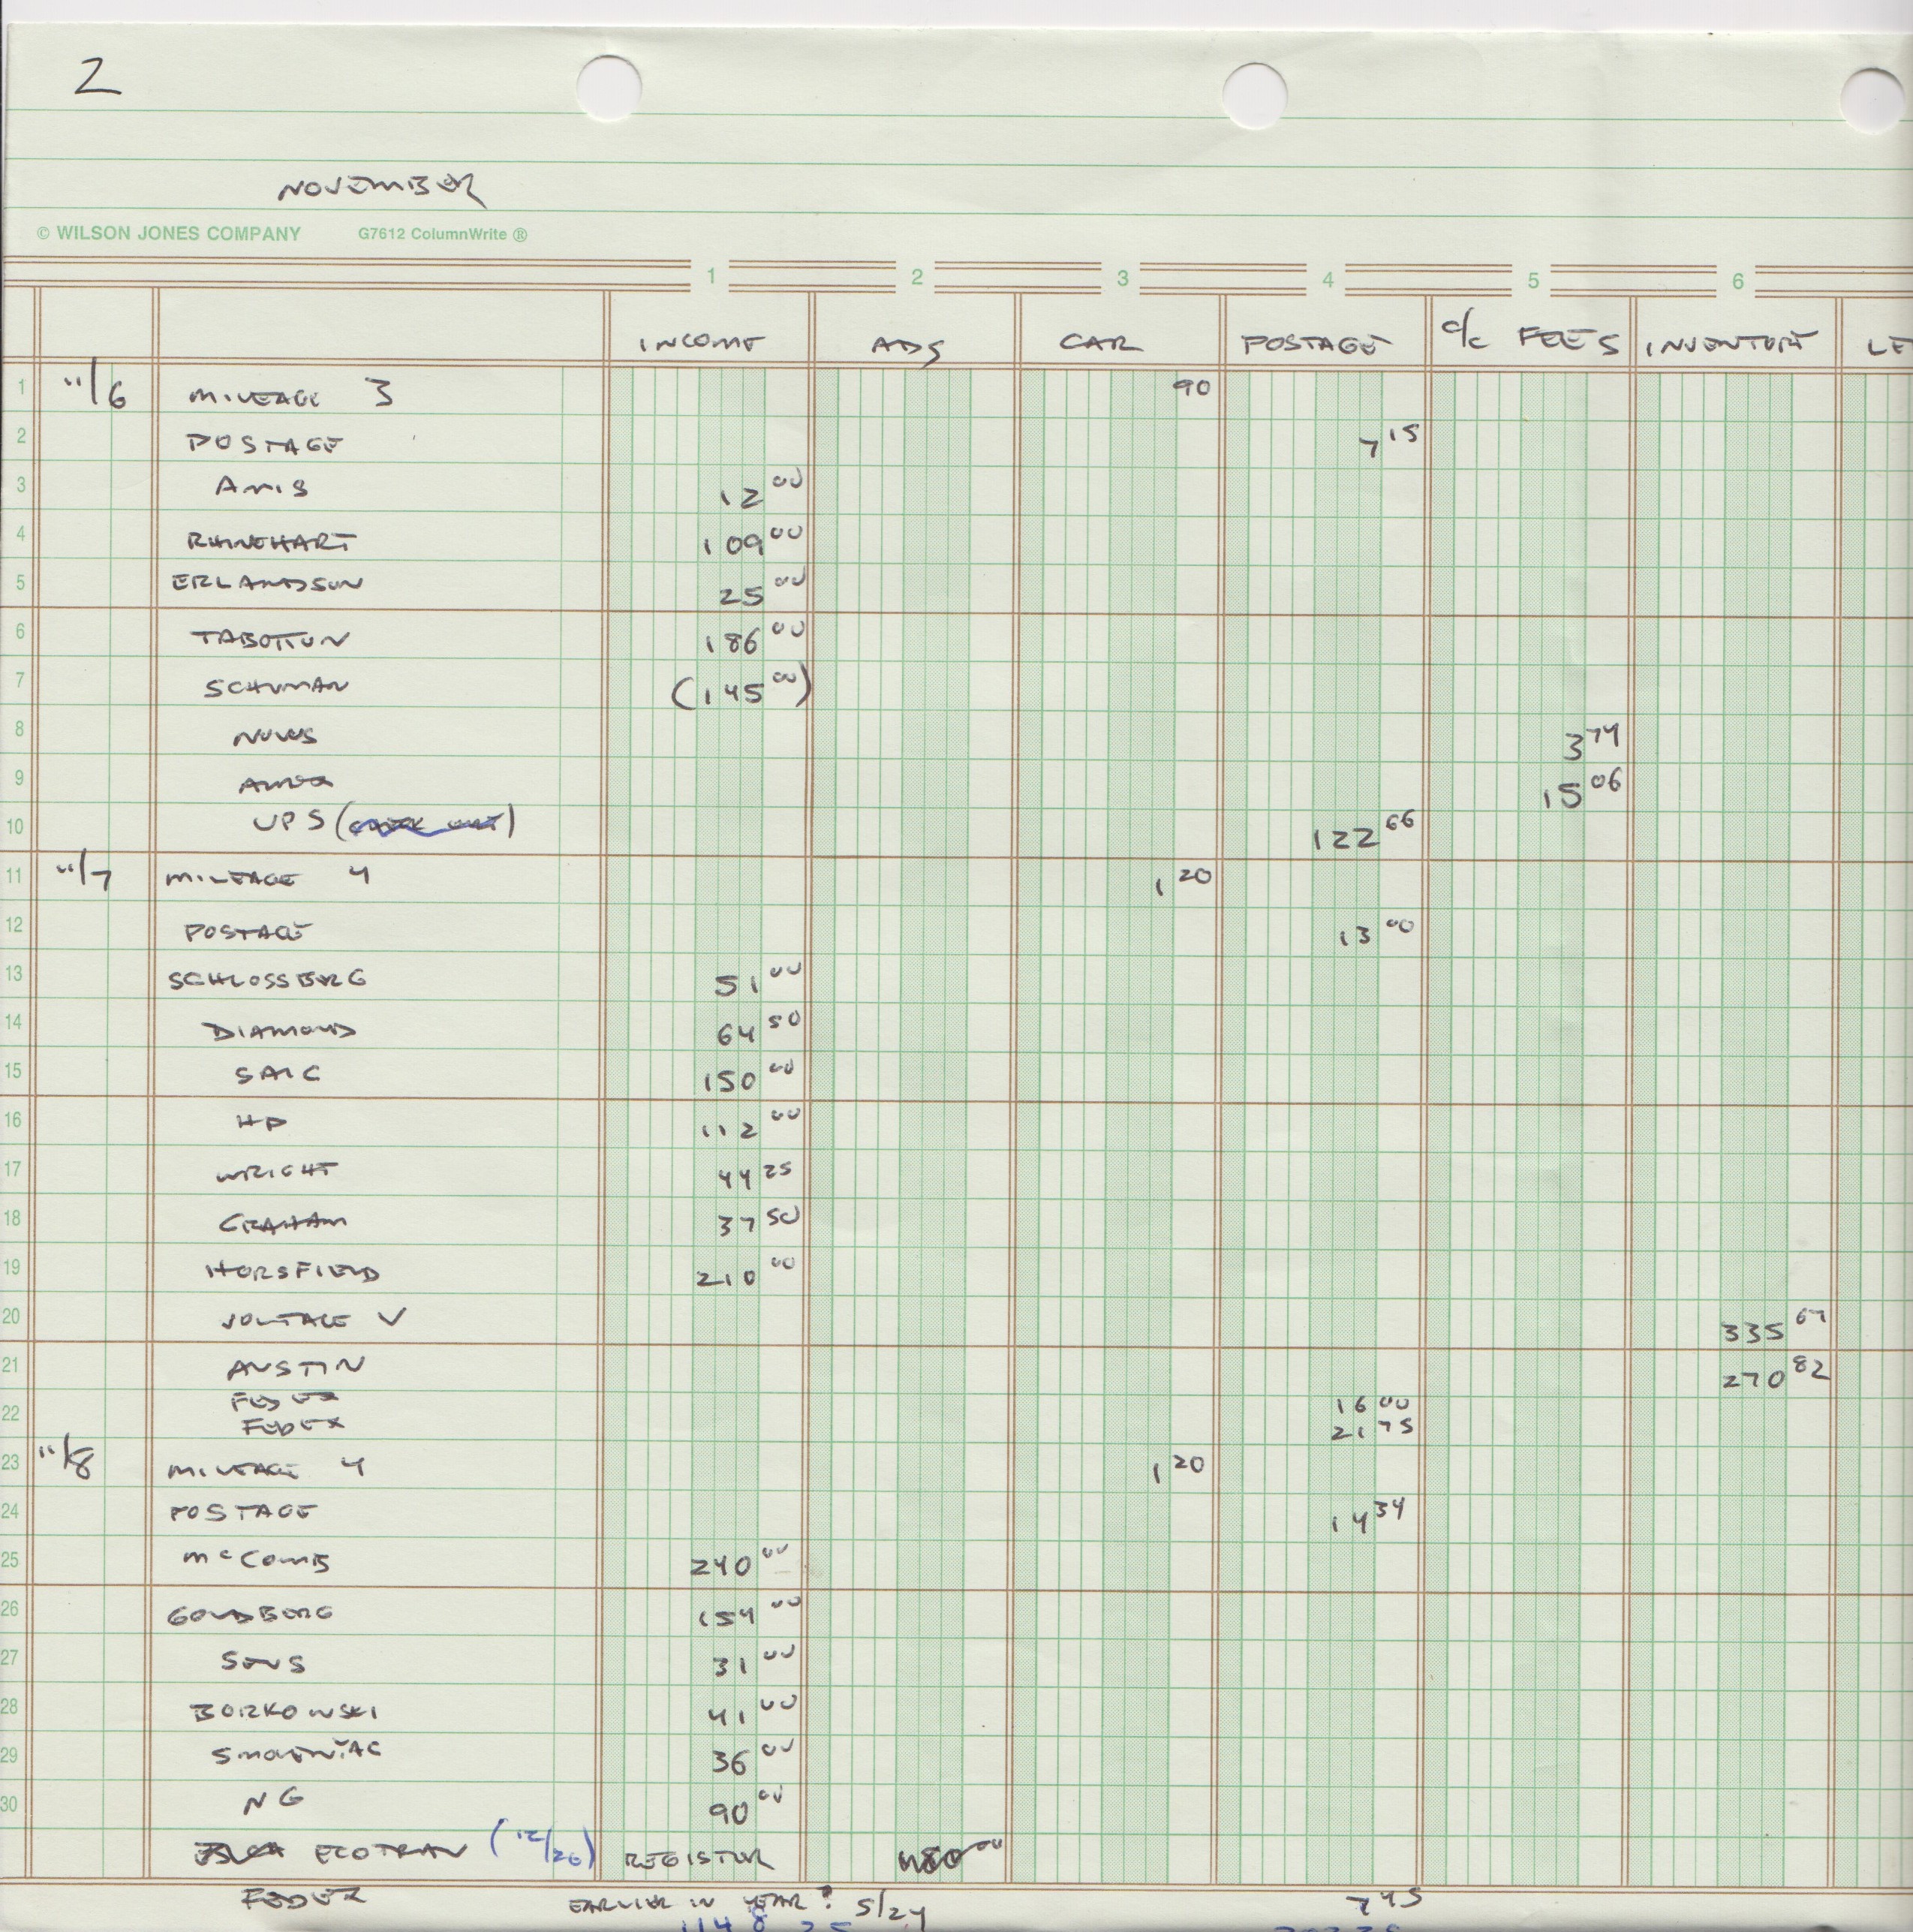 2
NOVEMBER
© WILSON JONES COMPANY G7612 ColumnWrite ®
1 2 3 4 5 6
INCOME ADS CAR POSTAGE c/c FEES INVENTORY LE
1 11/6 MILEAGE 3 90
2 POSTAGE 7 15
3 AMIS 12 00
4 RHINEHART 109 00
5 ERLANDSON 25 00
6 TABOTTON 186 00
7 SCHUMAN (145 00)
8 NOVUS 3 74
9 AMEX 15 06
10 UPS ( ) 122 66
11 11/7 MILEAGE 4 1 20
12 POSTAGE 13 00
13 SCHLOSSBERG 51 00
14 DIAMOND 64 50
15 SAIC 150 00
16 HP 112 00
17 WRIGHT 44 25
18 GRAHAM 37 50
19 HORSFIELD 210 00
20 VOLTAGE V 335 67
21 AUSTIN 270 82
FEDEX 16 00
22 FEDEX 21 75
23 11/8 MILEAGE 4 1 20
24 POSTAGE 14 34
25 McCOMB 240 00
26 GOLDBERG 154 00
27 31 00
28 BORKOWSKI 41 00
29 36 00
30 NG 90 00
ECOTRAN (12/26) REGISTER 480 00
FEDEX EARLIER IN YEAR? 5/24 7 45